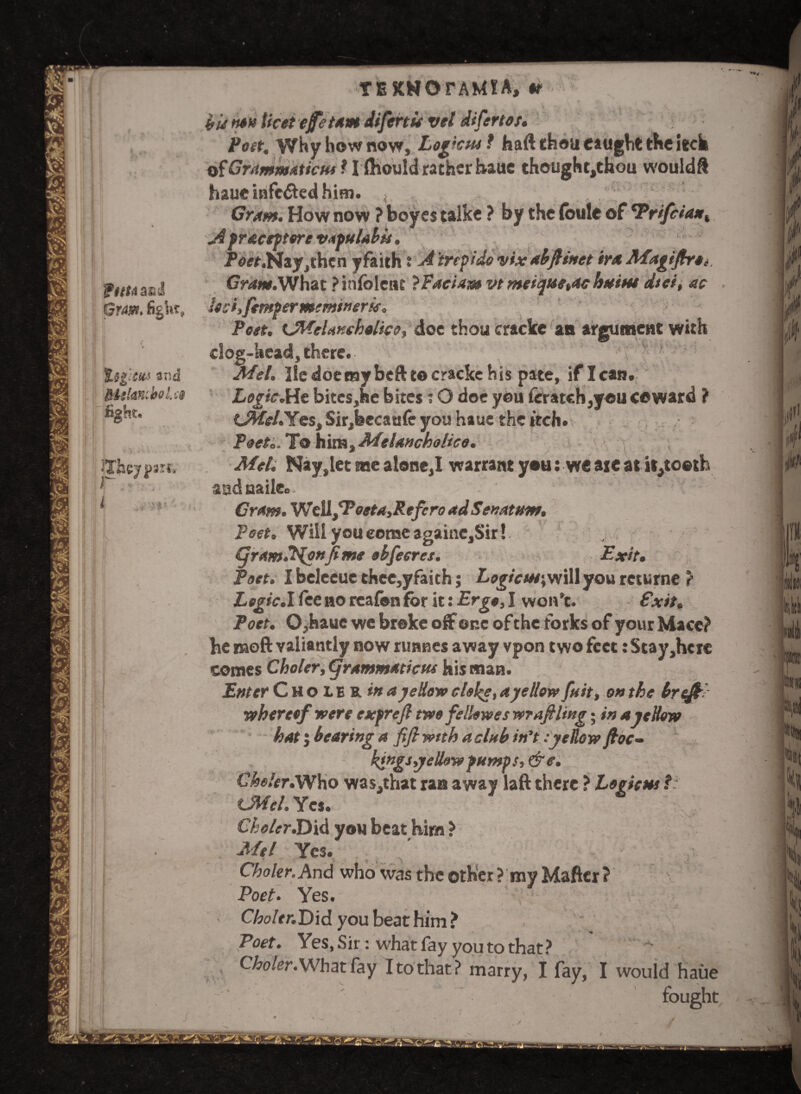 ΤΕΧΝΟΓΑΜΙΑ, or
his non licet esse tam disertis vel disertos.
Poet. Why how now, Logicus? hast thou caught the itch
of Grammaticus? I should rather haue thought, thou wouldst
haue infected him.
Gram. How now? boyes talke? by the soule of Priscian,
A præceptore vapulabis.
Poet. Nay, then yfaith: A trepido vix abstinet ira Magistro.
Gram. What? insolent? Faciam vt meique, ac huius diei, ac
loci, semper memineris.
Poeta and
Gram. fight,
Poet. Melancholico, doe thou cracke an argument with
clog-head, there.
Mel. Ile doe my best to cracke his pate, if I can.
Logicus and
Melancholico
fight.
Logic. He bites, he bites: O doe you scratch, you coward?
Mel. Yes, Sir, because you haue the itch.
Poet. To him, Melancholico.
Mel. Nay, let me alone, I warrant you: we are at it, tooth
and naile.
They part.
Gram. Well, Poeta, Refero ad Senatum.
Poet. Will you come againe, Sir!
Gram. Non si me obsecres. Exit.
Poet. I beleeue thee, yfaith; Logicus; will you returne?
Logic. I see no reason for it: Ergo, I won't. Exit.
Poet. O, haue we broke off one of the forks of your Mace?
he most valiantly now runnes away vpon two feet: Stay, here
comes Choler, Grammaticus his man.
Enter CHOLER in a yellow cloke, a yellow suit, on the brest
whereof were exprest two fellowes wrastling; in a yellow
hat; bearing a fist with a club in't: yellow stoc-
kings, yellow pumps, &c.
Choler. Who was, that ran away last there? Logicus?
Mel. Yes.
Choler. Did you beat him?
Mel Yes.
Choler. And who was the other? my Master?
Poet. Yes.
Choler. Did you beat him?
Poet. Yes, Sir: what say you to that?
Choler. What say I to that? marry, I say, I would haue
fought